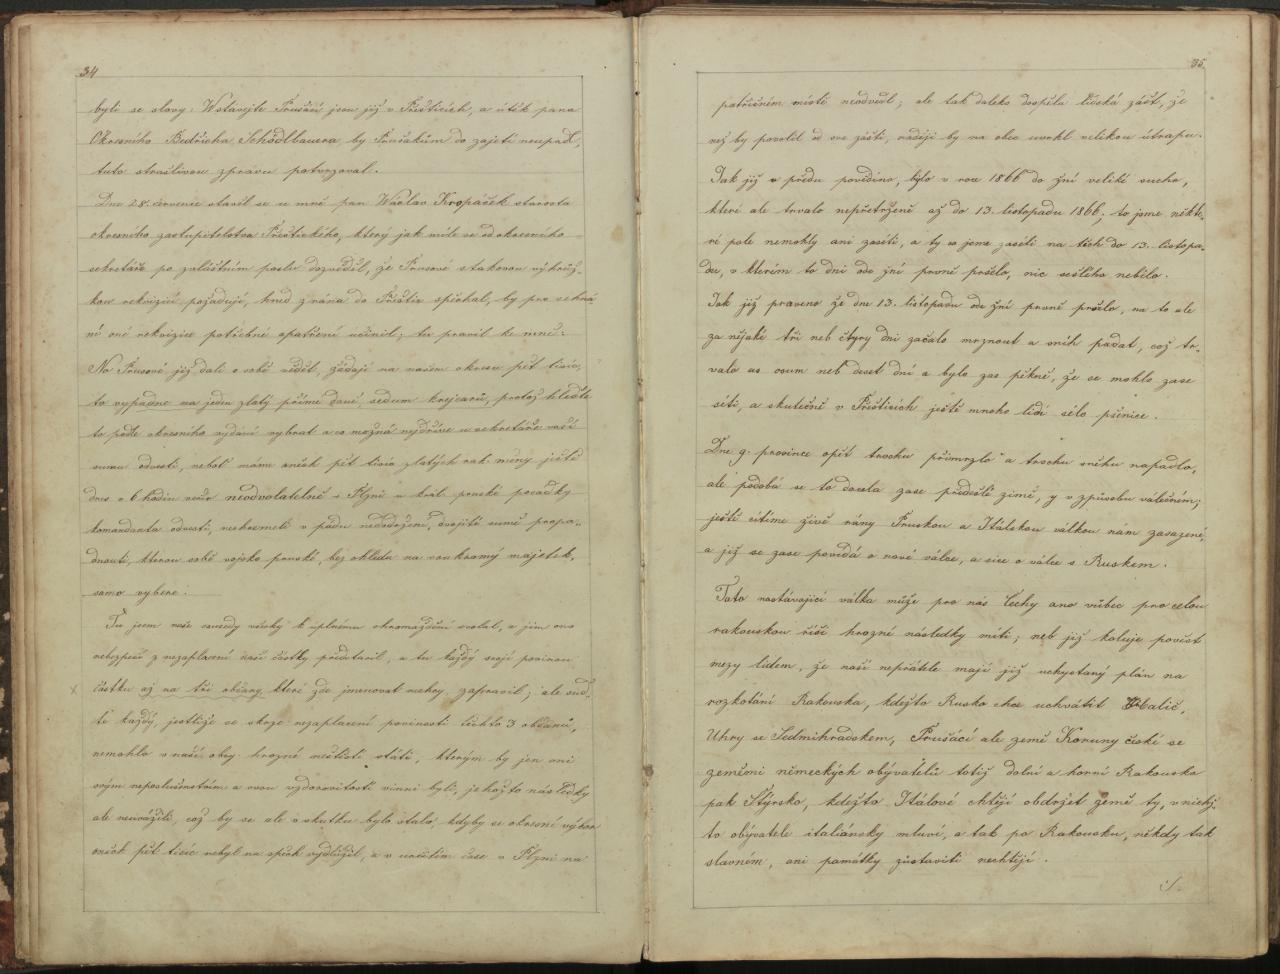 34
byli se slovy: Wstávejte Prušáci jsou již v Přešticích, a útěk pana
Okresního Bedřicha Schödlbauera, by Prušákům do zajetí neupadl,
tuto strašlivou zprávu potvrzoval.
Dne 28. července stavil se u mně pan Wáclav Kropáček starosta
okresního zastupitelstva Přeštického, který jak míle se od okresního
sekretáře po zvláštním poslu dozvěděl, že Prusové takovou výhrůž-
kou rekvizici požadují, hned z rána do Přeštic spěchal, by pro sehná-
ní oné rekvizice potřebné opatření učinil; tu pravil ke mně:
No Prusové již dali o sobě vědět, žádají na našem okresu pět tisíc,
to vypadne na jeden zlatý přímé daně, sedum krejcarů, protož hleďte
to podle okresního vydání vybrat a co možná nejdříve u sekretáře vaší
sumu odvesti, neboť máme oněch pět tisíc zlatých rak. měny ještě
dnes o 6 hodin večír neodvolatelně v Plzni u král. pruské posádky
komandanta odvesti, nechcemeli v pádu nedodržení, dvojité sumě propa-
dnouti, kterou sobě vojsko pruské, bez ohledu na soukromý majetek,
samo vybere.
Tu jsem naše sousedy všecky k úplnému shromáždění svolal, a jim ono
nebezpečí z nezaplacení naší částky představil, a tu každý svojí povinou
x částku až na tři občany, které zde jmenovat nechcy, zapravil; ale suď-
te každý, jestliže se skrze nezaplacení povinosti těchto 3 občanů,
nemohlo v naší obcy hrozné neštěstí státi, kterým by jen oni
svým neposlušenstvím a svou vzdorovitostí vinni byli, jehožto následky
ale neuvážili, což by se ale v skutku bylo stalo, kdyby se okresní výbor
oněch pět tisíc nebyl na spěch vydlůžil, a v určitím čase v Plzni na
35
patřičném místě neodvedl; ale tak daleko dospěla lidská zášť, že
než by povolil od své zášti, raději by na obec uvrhl velikou útrapu.
Jak již v předu povědíno, bylo v roce 1866 do žní veliké sucho,
které ale trvalo nepřetrženě až do 13. listopadu 1866, to jsme někte-
ré pole nemohly ani zasíti, a ty co jsme zaséli na těch do 13. listopa-
du, v kterém to dni ode žní prvně pršelo, nic sešlého nebilo.
Jak již praveno že dne 13. listopadu ode žní prvně pršelo, na to ale
za nějaké tři neb čtyry dni začalo mrznout a sníh padat, což tr-
valo as osum neb deset dní a bylo zas pěkně, že se mohlo zase
síti, a skutečně v Přešticích ještě mnoho lidí sélo pšenice.
Dne 9. prosince opět trochu přimrzlo a trochu sněhu napadlo,
ale podobá se to docela zase předešlé zimě, y v způsobu válečném;
ještě cítíme živě rány Pruskou a Itálskou válkou nám zasazené,
a již se zase povídá o nové válce, a sice o válce s Ruskem.
Tato nastávající válka může pro nás Čechy ano vůbec pro celou
rakouskou říši hrozné následky míti; neb již koluje pověst
mezy lidem, že naši nepřátelé mají již uchystaný plán na
rozkotání Rakouska, kdežto Rusko chce uchvátit Halič,
Uhry se Sedmihradskem, Prušácí ale země Koruny české se
zeměmi německých obyvatelů totiž dolní a horní Rakousko
pak Štýrsko, kdežto Itálové chtějí obdržet země ty, v nichž-
to obyvatelé italiánsky mluví, a tak po Rakousku, někdy tak
slavném, ani památky zůstaviti nechtějí.